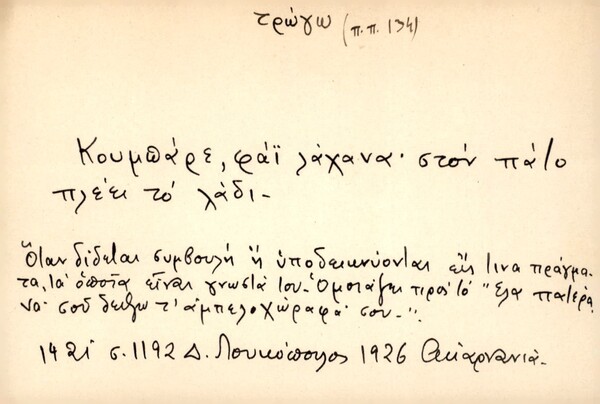 τρώγω (π.π. 134)
Κουμπάρε, φάϊ λάχανα· στον πάτο
πλέει τό λάδι-
Ὅταν δίδεται συμβουλή ἤ ὑποδεικνύονται εἴς τινα πράγμα-
τα, τά ὁποῖα εἶναι γνωστά του. Ὁμοιάζει πρός τό "Ἔλα πατέρα
νά σοῦ δείξω τ' ἀμπελοχώραφά σου-".
1421 σ. 1192 Δ. Λουκόπουλος 1926 Ακαρνανιά-